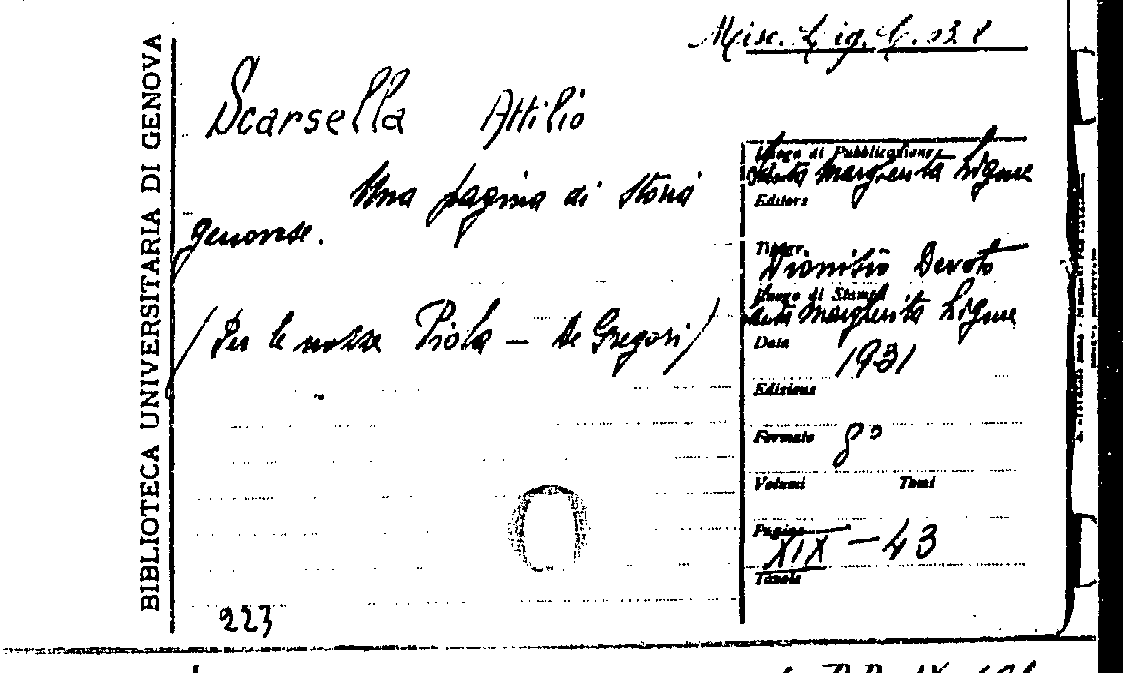 Misc. Lig. C. 13. 8
BIBLIOTECA UNIVERSITARIA DI GENOVA
Scarsella Attilio
Una pagina di storia
genovese.
(Per le nozze Piola — De Gregori)
223
Luogo di Pubblicazione
Santa Margherita Ligure
Editore
Tipogr.
Dionisio Devoto
Luogo di Stampa
Santa Margherita Ligure
Data
1931
Edizione
Formato 8°
Volumi Tomi
Pagine
XIX — 43
Tavole